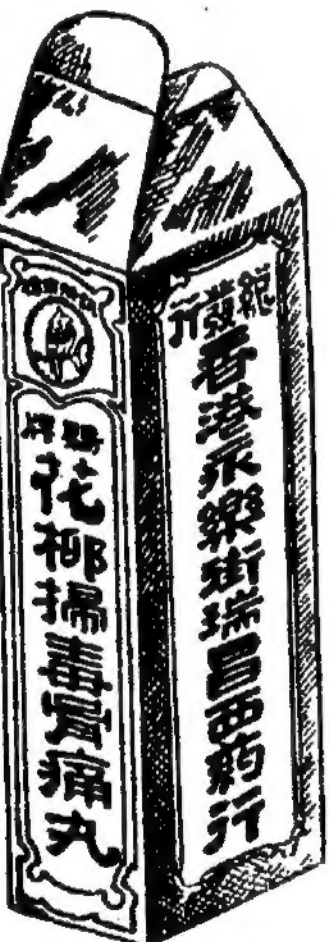 總發行
香港永樂街瑞昌西葯行
牌
花柳掃毒骨痛丸